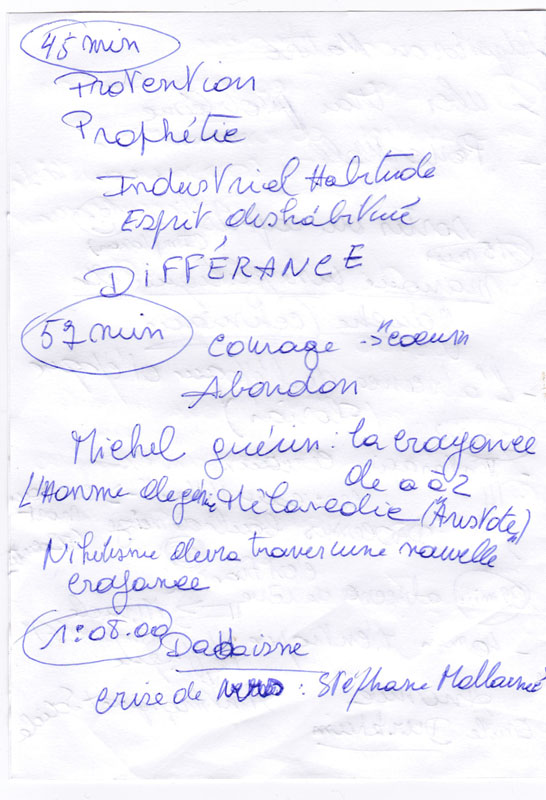 45 min
Protention
Prophétie
Industriel Habitude
Esprit déshabitué
DiFFÉRANCE
57 min courage -> "coeur"
Abandon
Michel guérin : la croyance
de a à z
L'Homme de génie Mélancolie (Aristote)"
Nihilisme devra trouver une nouvelle
croyance
1:08.00 Dadaisme
crise de : Stéphane Mallarmé